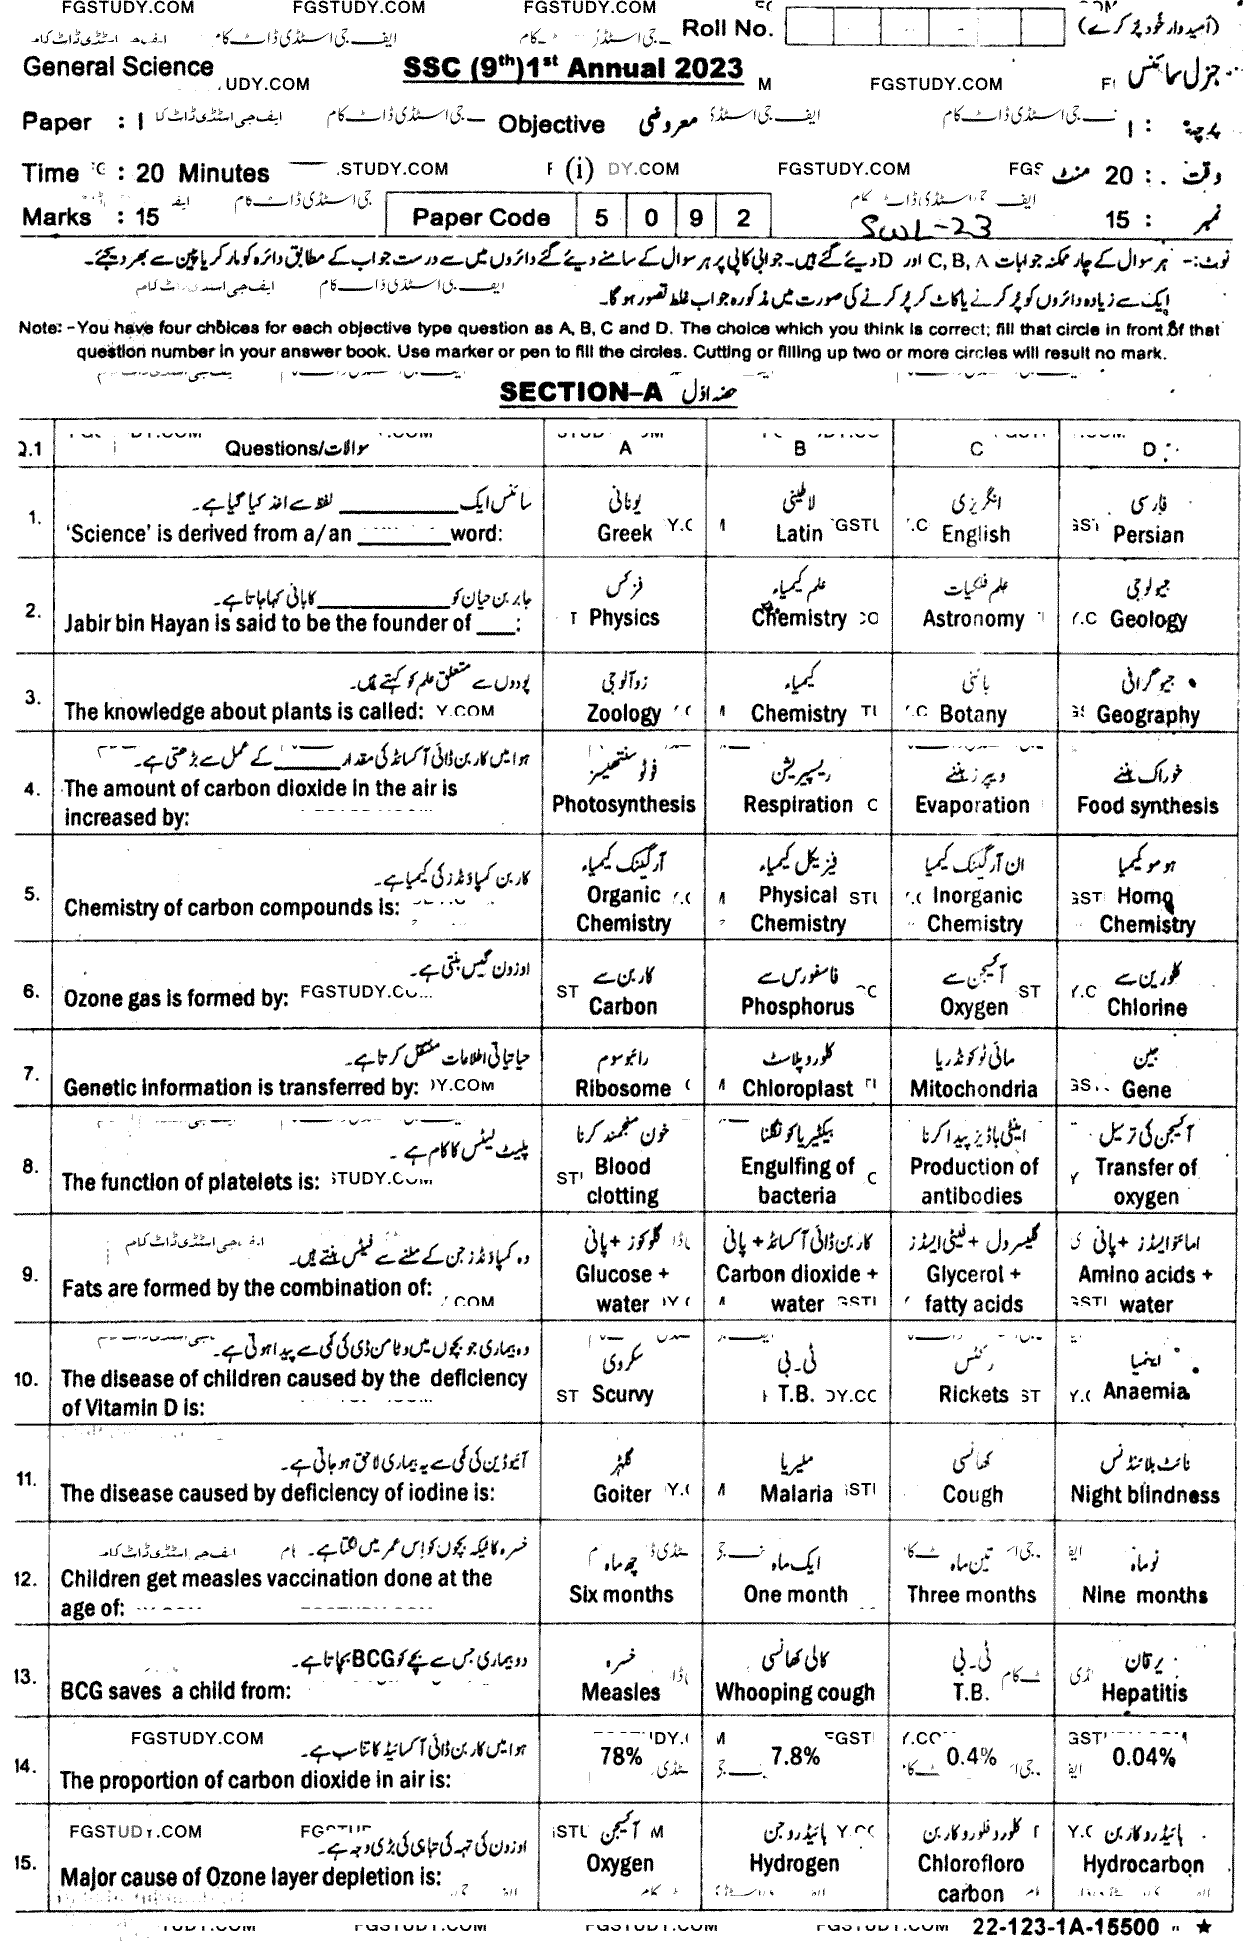 FGSTUDY.COM FGSTUDY.COM FGSTUDY.COM
Roll No. (امیدوار خود پُر کرے)
General Science SSC (9th) 1st Annual 2023 جنرل سائنس
UDY.COM FGSTUDY.COM
Paper : I Objective معروضی پرچہ : I
Time : 20 Minutes (i) وقت : 20 منٹ
.STUDY.COM DY.COM FGSTUDY.COM
Marks : 15 Paper Code 5 0 9 2 SWL-23 نمبر : 15
نوٹ:- ہر سوال کے چار ممکنہ جوابات A ,B ,C اور D دیئے گئے ہیں۔ جوابی کاپی پر ہر سوال کے سامنے دیئے گئے دائروں میں سے درست جواب کے مطابق دائرہ کو مارکر یا پین سے بھر دیجئے۔
ایک سے زیادہ دائروں کو پُر کرنے یا کاٹ کر پُر کرنے کی صورت میں مذکورہ جواب غلط تصور ہو گا۔
Note: -You have four choices for each objective type question as A, B, C and D. The choice which you think is correct; fill that circle in front of that
question number in your answer book. Use marker or pen to fill the circles. Cutting or filling up two or more circles will result no mark.
SECTION-A حصہ اوّل
Q.1 Questions/سوالات A B C D
سائنس ایک ________ لفظ سے اخذ کیا گیا ہے۔ یونانی لاطینی انگریزی فارسی
1. 'Science' is derived from a/an ________ word: Greek Latin English Persian
جابر بن حیان کو ________ کا بانی کہا جاتا ہے۔ فزکس علم کیمیاء علم فلکیات جیولوجی
2. Jabir bin Hayan is said to be the founder of ___: Physics Chemistry Astronomy Geology
پودوں سے متعلق علم کو کہتے ہیں۔ زوآلوجی کیمیاء باٹنی جیوگرافی
3. The knowledge about plants is called: Zoology Chemistry Botany Geography
ہوا میں کاربن ڈائی آکسائڈ کی مقدار ______ کے عمل سے بڑھتی ہے۔ فوٹو سنتھیسز ریسپیریشن ویپرز بننے خوراک بننے
4. The amount of carbon dioxide in the air is Photosynthesis Respiration Evaporation Food synthesis
increased by:
کاربن کمپاؤنڈز کی کیمیا ہے۔ آرگینک کیمیاء فزیکل کیمیاء ان آرگینک کیمیا ہومو کیمیا
5. Chemistry of carbon compounds is: Organic Physical Inorganic Homo
Chemistry Chemistry Chemistry Chemistry
اوزون گیس بنتی ہے۔ کاربن سے فاسفورس سے آکسیجن سے کلورین سے
6. Ozone gas is formed by: Carbon Phosphorus Oxygen Chlorine
حیاتیاتی اطلاعات منتقل کرتا ہے۔ رائبوسوم کلوروپلاسٹ مائی ٹوکونڈریا جین
7. Genetic information is transferred by: Ribosome Chloroplast Mitochondria Gene
پلیٹ لیٹس کا کام ہے۔ خون منجمند کرنا بیکٹیریا کو نگلنا اینٹی باڈیز پیدا کرنا آکسیجن کی ترسیل
8. The function of platelets is: Blood Engulfing of Production of Transfer of
clotting bacteria antibodies oxygen
وہ کمپاؤنڈز جن کے ملنے سے فیٹس بنتے ہیں۔ گلوکوز + پانی کاربن ڈائی آکسائڈ + پانی گلیسرول + فیٹی ایسڈز امائنو ایسڈز + پانی
9. Fats are formed by the combination of: Glucose + Carbon dioxide + Glycerol + Amino acids +
water water fatty acids water
وہ بیماری جو بچوں میں وٹامن ڈی کی کمی سے پیدا ہوتی ہے۔ سکروی ٹی۔بی رکٹس اینیمیا
10. The disease of children caused by the deficiency Scurvy T.B. Rickets Anaemia
of Vitamin D is:
آئیوڈین کی کمی سے یہ بیماری لاحق ہو جاتی ہے۔ گلہڑ ملیریا کھانسی نائٹ بلائنڈنس
11. The disease caused by deficiency of iodine is: Goiter Malaria Cough Night blindness
خسرہ کا ٹیکہ بچوں کو اِس عمر میں لگتا ہے۔ چھ ماہ ایک ماہ تین ماہ نو ماہ
12. Children get measles vaccination done at the Six months One month Three months Nine months
age of:
وہ بیماری جس سے بچے کو BCG بچاتا ہے۔ خسرہ کالی کھانسی ٹی۔بی یرقان
13. BCG saves a child from: Measles Whooping cough T.B. Hepatitis
FGSTUDY.COM
ہوا میں کاربن ڈائی آکسائیڈ کا تناسب ہے۔
14. The proportion of carbon dioxide in air is: 78% 7.8% 0.4% 0.04%
FGSTUDY.COM
اوزون کی تہہ کی تباہی کی بڑی وجہ ہے۔ آکسیجن ہائیڈروجن کلوروفلوروکاربن ہائیڈروکاربن
15. Major cause of Ozone layer depletion is: Oxygen Hydrogen Chlorofloro Hydrocarbon
carbon
22-123-1A-15500 ★